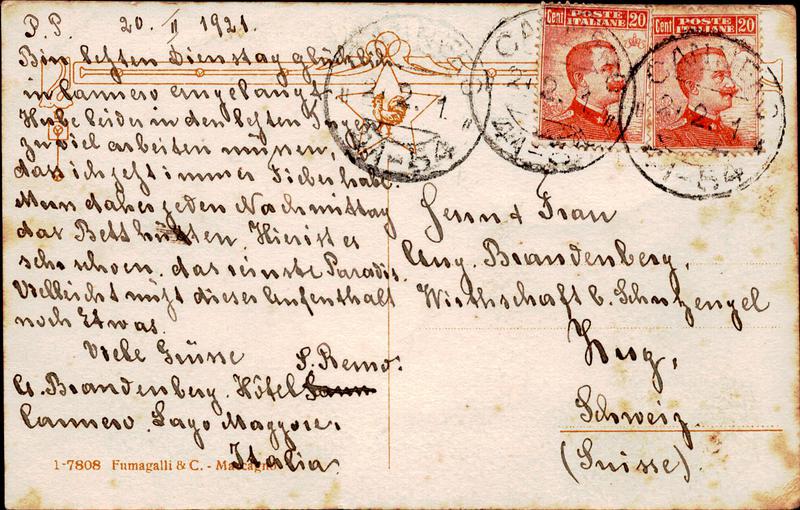 P.P. 20. II 1921.
Bin letzten Dienstag glücklich
in Cannero angelangt.
Habe leider in den letzten Tagen
zu viel arbeiten müssen,
das ich jetzt immer Fieber habe.
Muss daher jeden Nachmittag
das Bett hüten. Hier ist es
sehr schoen, das reinste Paradis.
Vielleicht nützt dieser Aufenthalt
noch Etwas.
Viele Grüsse
G. Brandenberg. Hôtel S. Remo.
Cannero. Lago Maggiore.
Italia.
1-7808 Fumagalli & C. - Maccagno
Cent POSTE ITALIANE 20
Cent POSTE ITALIANE 20
Herrn & Frau
Aug. Brandenberg.
Wirthschaft b. Schutzengel
Zug,
Schweiz.
(Suisse)